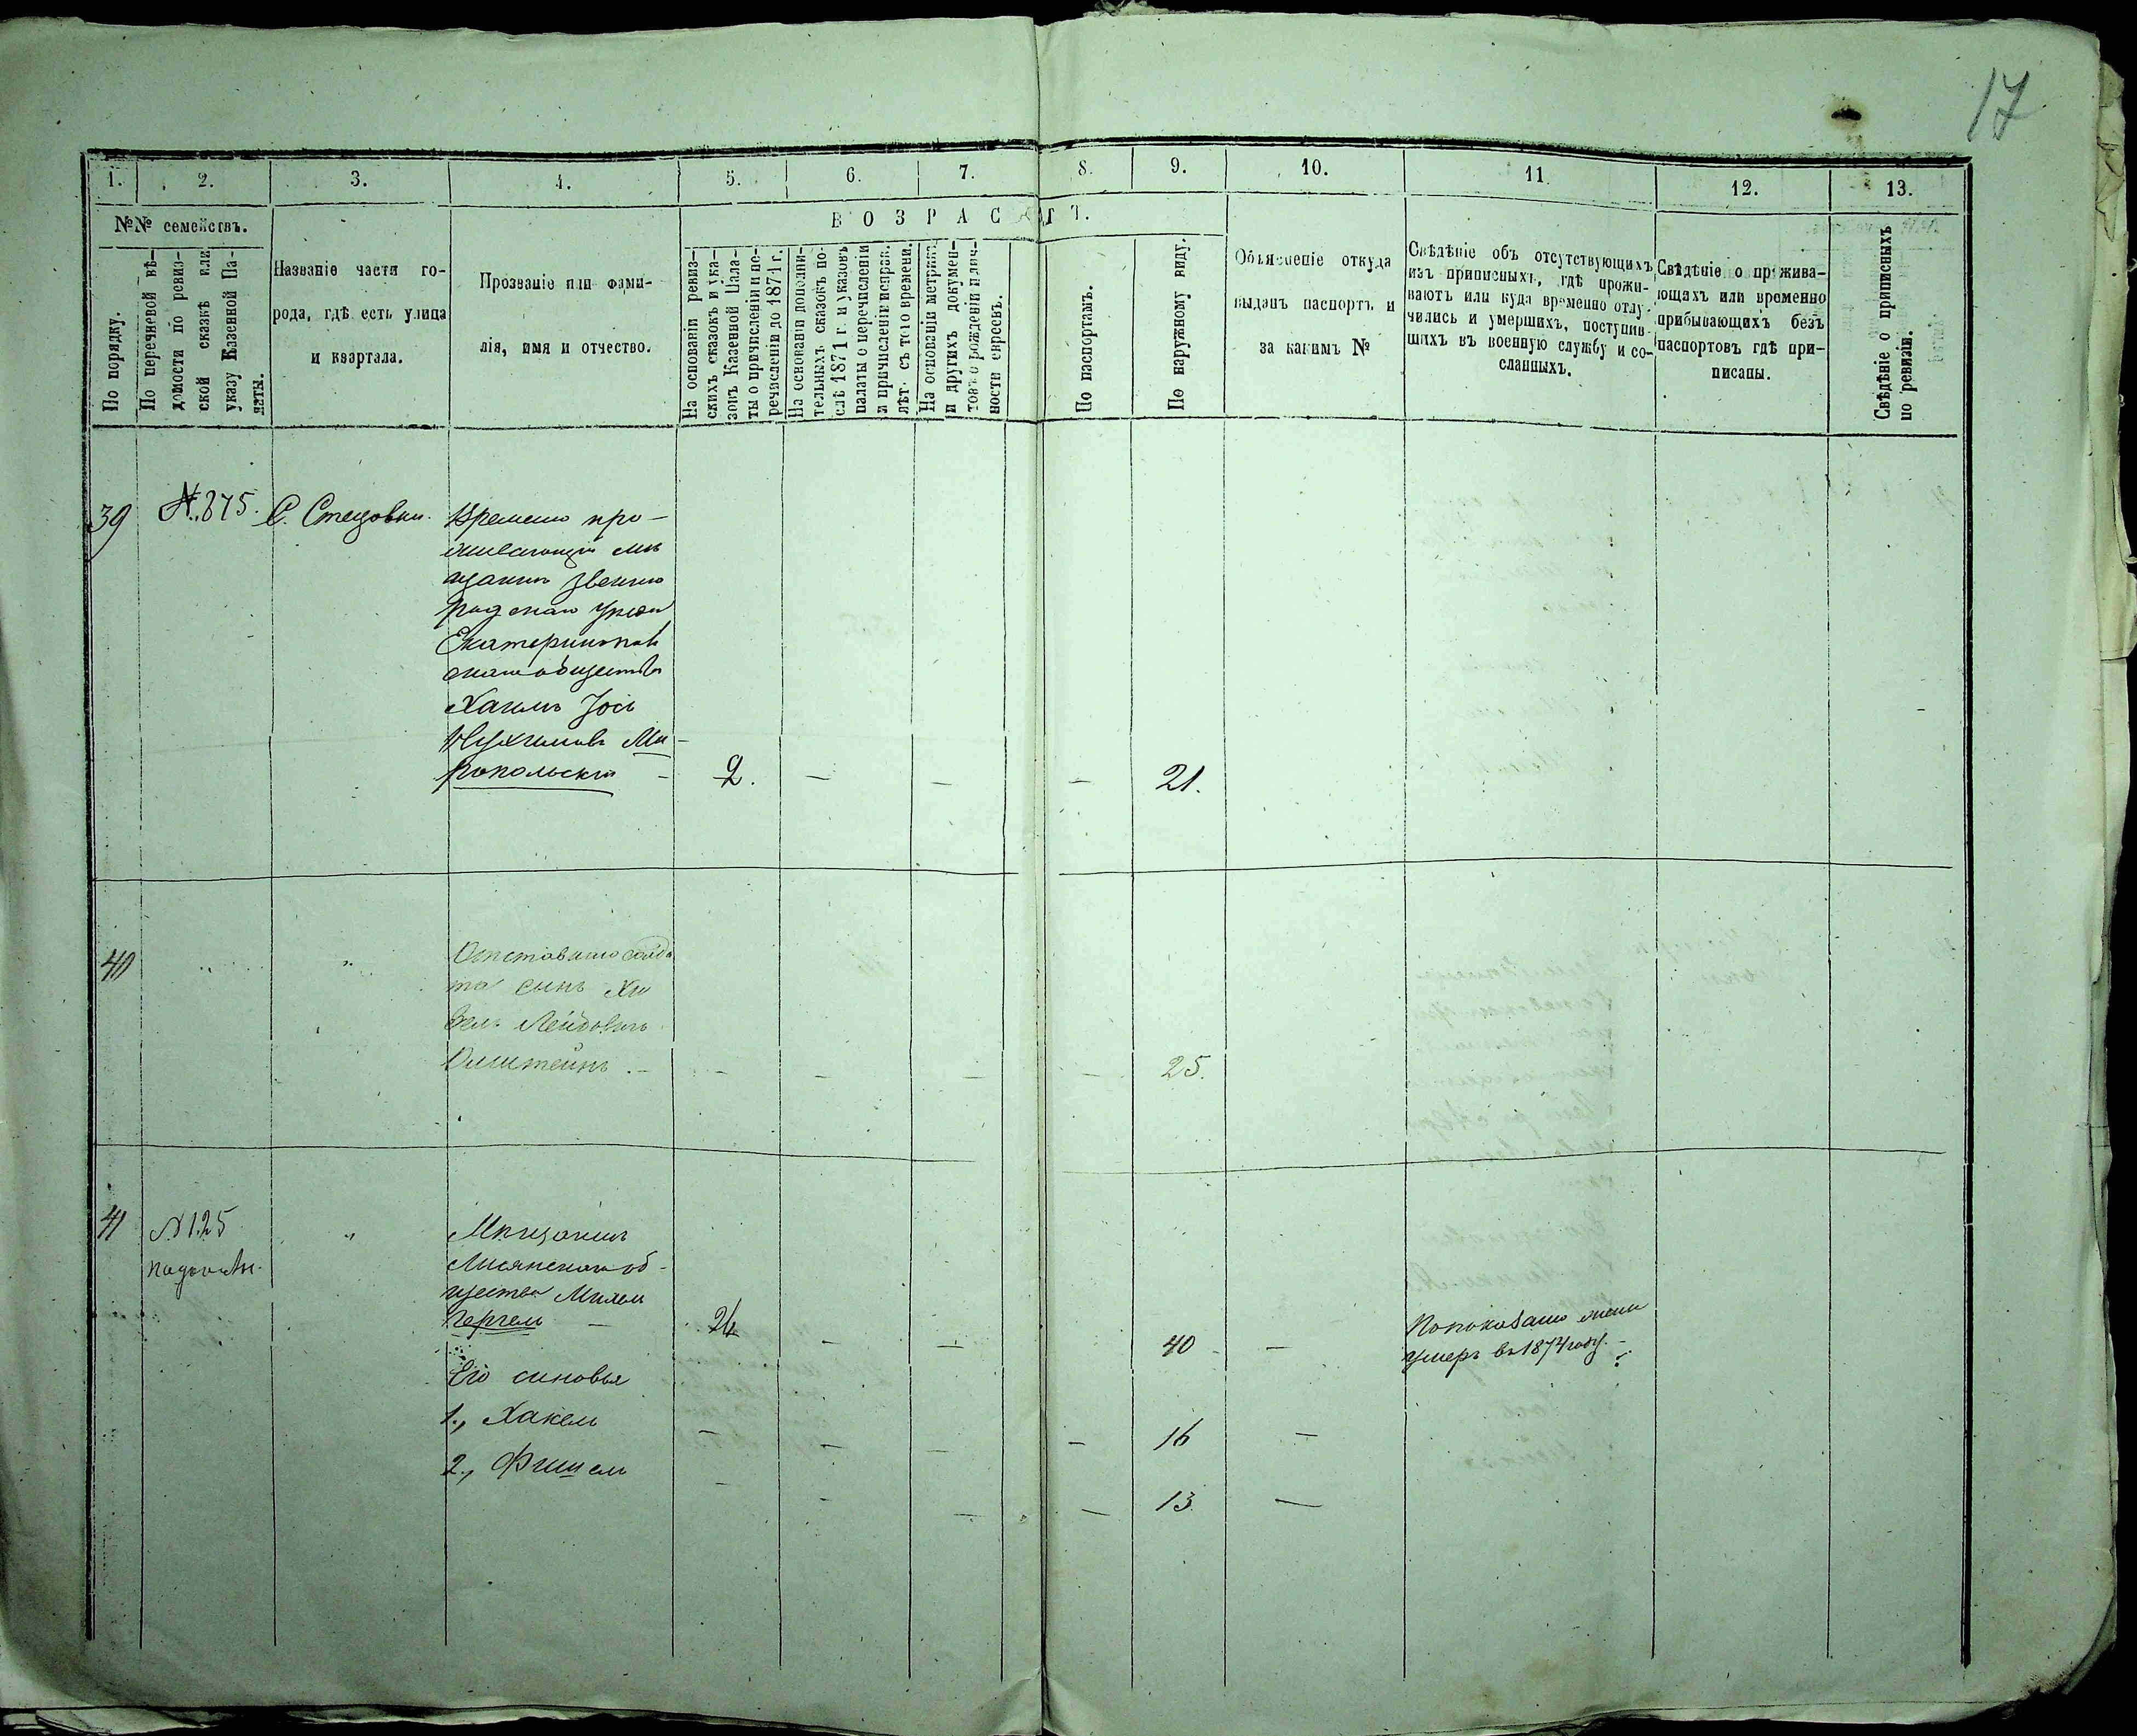 17
1. 2. 3. 4. 5. 6. 7. 8. 9. 10. 11. 12. 13.
№№ семействъ.
По порядку.
По перечневой вѣ-
домости по ревиз-
ской сказкѣ или
указу Казенной Па-
латы.
Названіе части го-
рода, гдѣ есть улица
и квартала.
Прозваніе или фами-
лія, имя и отчество.
ВОЗРАСТ Т.
На основаніи ревиз-
скихъ сказокъ и ука-
зовъ Казенной Пала-
ты о причисленіи и пе-
речисленіи до 1871 г.
На основаніи дополни-
тельныхъ сказокъ по-
слѣ 1871 г. и указовъ
палаты о перечисленіи
и причисленіи исправ.
лѣт. съ того времени.
На основаніи метрикъ
и другихъ докумен-
товъ о рожденіи и лич-
ности евреевъ.
По паспортамъ.
По наружному виду.
Объясненіе откуда
выданъ паспортъ и
за какимъ №
Свѣдѣніе объ отсутствующихъ
изъ приписныхъ, гдѣ прожи-
ваютъ или куда временно отлу-
чились и умершихъ, поступив-
шихъ въ военную службу и со-
сланныхъ.
Свѣдѣніе о прожива-
ющихъ или временно
прибывающихъ безъ
паспортовъ гдѣ при-
писаны.
Свѣдѣніе о приписныхъ
по ревизіи.
39 №.875. С. Стецовки. Времено про-
живающій мѣ
щанинъ Звенио
родскаго уѣзда
Екатеринополь
скаго общества
Хаимъ Іось
Нухимовъ Ми-
ропольскій - 2. — — — 21.
40 " Отставнаго солда
та сынъ
Лейбовичъ
- — — — — 25.
41 № 125 " Мѣщанинъ
Лисянскаго об-
щества
— 24 — — 40 — Попоказанію жени
умеръ въ 1874 году.
Его синовья
1., — — — — 16 —
2., Фишель — — — — 13. —